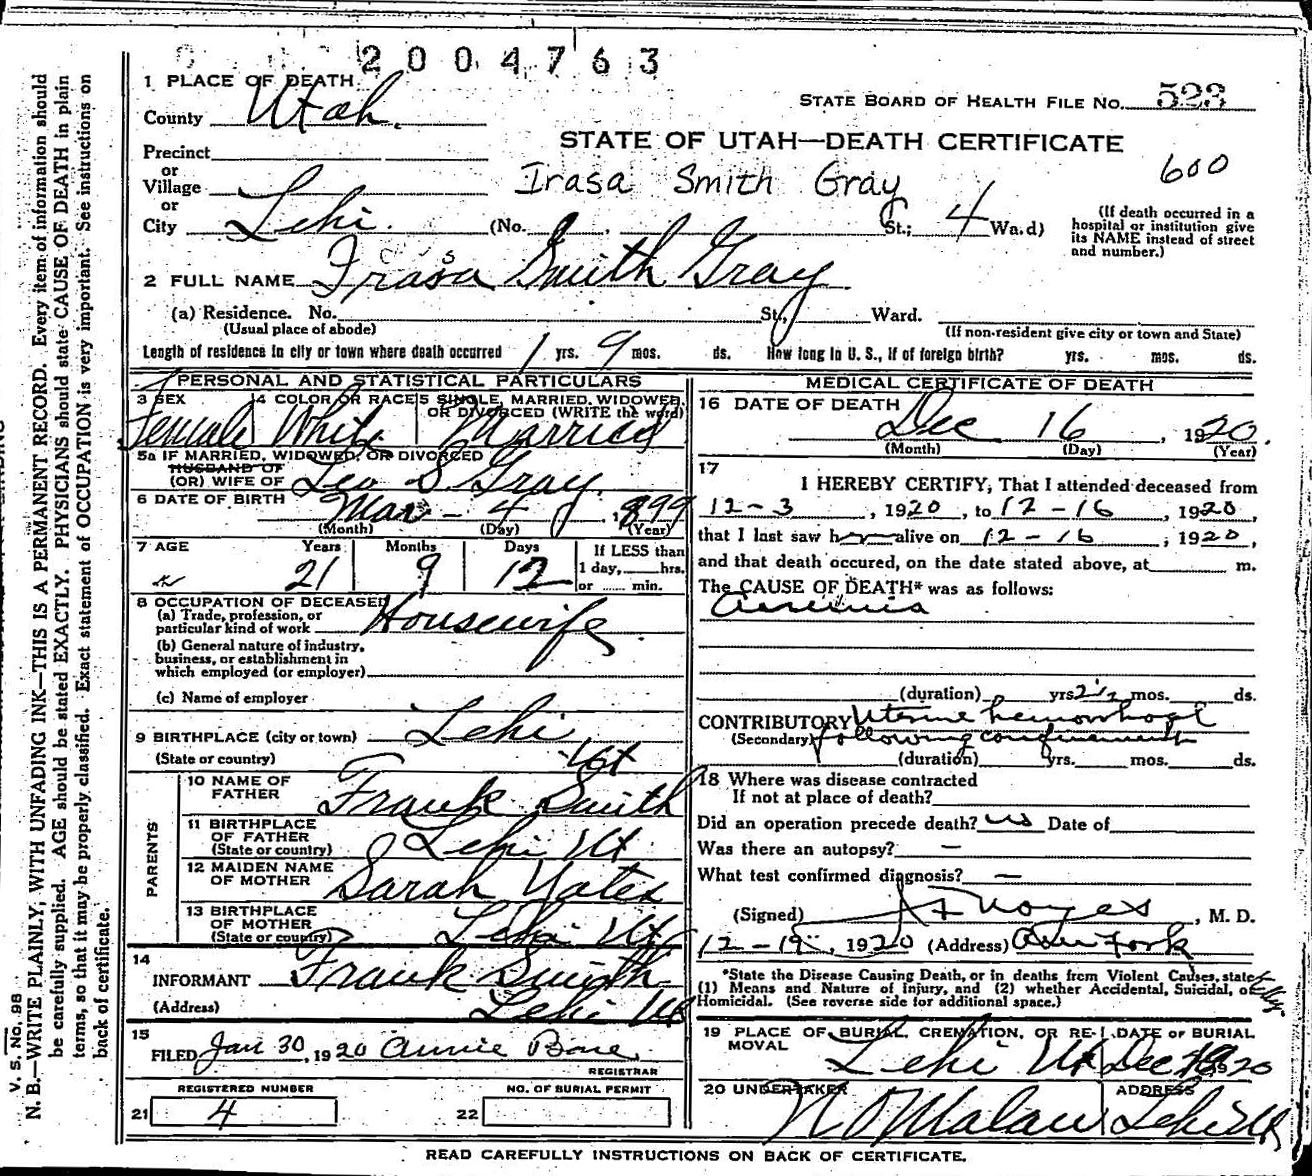 2004763
1 PLACE OF DEATH
STATE BOARD OF HEALTH FILE NO. 523
County Utah.
STATE OF UTAH—DEATH CERTIFICATE
Precinct
or
Village
Irasa Smith Gray
600
or
City Lehi. (No. , St.; 4 Wa.d)
(If death occurred in a
hospital or institution give
its NAME instead of street
and number.)
2 FULL NAME Irasa Smith Gray
(a) Residence. No. St., Ward.
(Usual place of abode) (If non-resident give city or town and State)
Length of residence in city or town where death occurred 1 yrs. 9 mos. ds. How long in U. S., if of foreign birth? yrs. mos. ds.
PERSONAL AND STATISTICAL PARTICULARS
3 SEX 4 COLOR OR RACE 5 SINGLE, MARRIED, WIDOWED,
OR DIVORCED (WRITE the word)
Female White Married
5a IF MARRIED, WIDOWED, OR DIVORCED
HUSBAND OF
(OR) WIFE OF Leo S Gray
6 DATE OF BIRTH Mar - 4 , 1899
(Month) (Day) (Year)
7 AGE Years Months Days If LESS than
1 day, hrs.
21 9 12 or min.
8 OCCUPATION OF DECEASED
(a) Trade, profession, or
particular kind of work Housewife
(b) General nature of industry,
business, or establishment in
which employed (or employer)
(c) Name of employer
9 BIRTHPLACE (city or town) Lehi
(State or country) Ut
PARENTS
10 NAME OF
FATHER Frank Smith
11 BIRTHPLACE
OF FATHER
(State or country) Lehi Ut
12 MAIDEN NAME
OF MOTHER Sarah Yates
13 BIRTHPLACE
OF MOTHER
(State or country) Lehi Ut
14
INFORMANT Frank Smith
(Address) Lehi Ut
15
FILED Jan 30, 1920 Annie Bone
REGISTRAR
REGISTERED NUMBER NO. OF BURIAL PERMIT
21 4 22
MEDICAL CERTIFICATE OF DEATH
16 DATE OF DEATH
Dec 16 , 1920.
(Month) (Day) (Year)
17
I HEREBY CERTIFY, That I attended deceased from
12-3 , 1920 , to 12-16 , 1920 ,
that I last saw her alive on 12-16 , 1920 ,
and that death occured, on the date stated above, at m.
The CAUSE OF DEATH* was as follows:
(duration) yrs. 2 1/2 mos. ds.
CONTRIBUTORY Uterine hemorrhage
(Secondary) following confinement
(duration) yrs. mos. ds.
18 Where was disease contracted
If not at place of death?
Did an operation precede death? no Date of
Was there an autopsy? —
What test confirmed diagnosis? —
(Signed) Noyes , M. D.
12-19 , 1920 (Address) Am Fork
*State the Disease Causing Death, or in deaths from Violent Causes, state
(1) Means and Nature of Injury, and (2) whether Accidental, Suicidal, or
Homicidal. (See reverse side for additional space.)
19 PLACE OF BURIAL, CREMATION, OR RE- DATE OF BURIAL
MOVAL
Lehi Ut Dec 1920
20 UNDERTAKER ADDRESS
N O Malan Lehi Ut
READ CAREFULLY INSTRUCTIONS ON BACK OF CERTIFICATE.
V. S. No. 98
N. B.—WRITE PLAINLY, WITH UNFADING INK—THIS IS A PERMANENT RECORD. Every item of information should
be carefully supplied. AGE should be stated EXACTLY. PHYSICIANS should state CAUSE OF DEATH in plain
terms, so that it may be properly classified. Exact statement of OCCUPATION is very important. See instructions on
back of certificate.